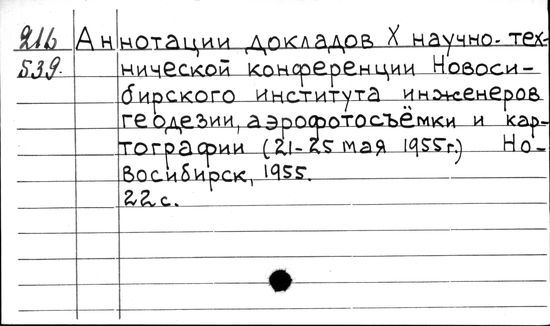 216 Аннотации докладов X научно-тех-
539. нической конференции Новоси-
бирского института инженеров
геодезии, аэрофотосъёмки и кар-
тографии (21-25 мая 1955г.) Но-
восибирск, 1955.
22с.